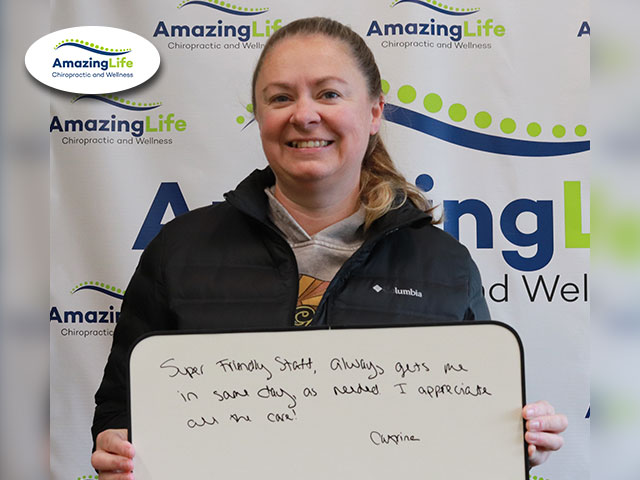 AmazingLife
Chiropractic and Wellness
AmazingLife
Chiropractic and Wellness
AmazingLife
Chiropractic and Wellness
AmazingLife
Chiropractic and Wellness
AmazingL
nd Well
AmazingLife
Chiropractic
Columbia
Super Friendly Staff, always gets me
in same day as needed I appreciate
all the care!